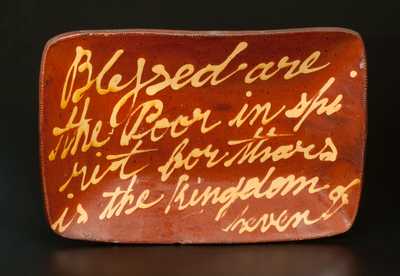 Blessed are
the Poor in spi
rit for thars
is the kingdom of
heven